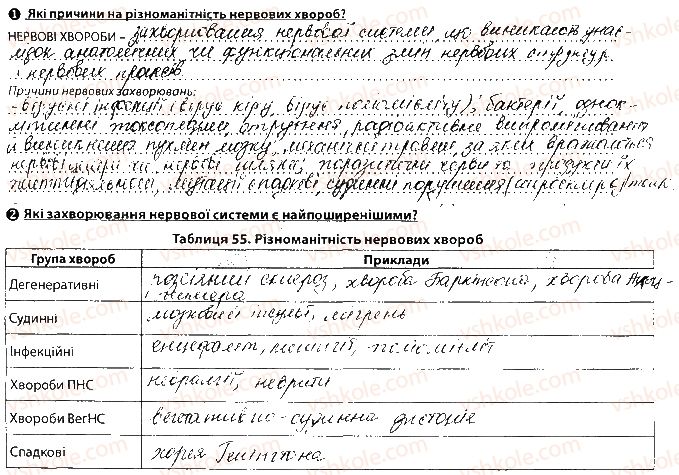 ❶ Які причини на різноманітність нервових хвороб?
НЕРВОВІ ХВОРОБИ – захворювання нервової системи, що виникають унас-
лідок анатомічних чи функціональних змін нервових структур
і нервових процесів
Причини нервових захворювань:
- вірусні інфекції (вірус кіру, вірус поліомієліту); бактерії, однок-
літинні токсоплазми, отруєння, радіоактивне випромінювання
й виникнення пухлин мозку, механічні травми, за яких вражаються
нервові центри чи нервові шляхи; паразитичні черви та продукти їх
життєдіяльності, мутації спадкові, судинні порушення
❷ Які захворювання нервової системи є найпоширенішими?
Таблиця 55. Різноманітність нервових хвороб
Група хвороб Приклади
Дегенеративні розсіяний склероз, хвороба Паркінсона, хвороба Альц-
геймера
Судинні мозковий інсульт, мігрень
Інфекційні енцефаліт, менінгіт, поліомієліт
Хвороби ПНС невралгії, неврити
Хвороби ВегНС вегетативно-судинна дистонія
Спадкові хорея Гентінгтона
vshkole.com